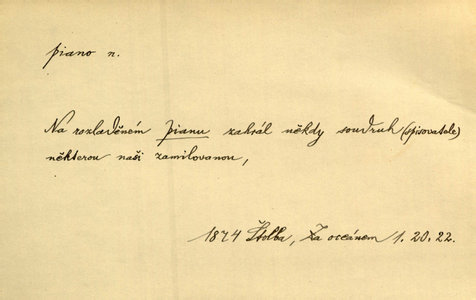 piano n.
Na rozladěném pianu zahrál někdy soudruh (spisovatele)
některou naši zamilovanou,
1874 Štolba, Za oceánem 1. 20. 22.